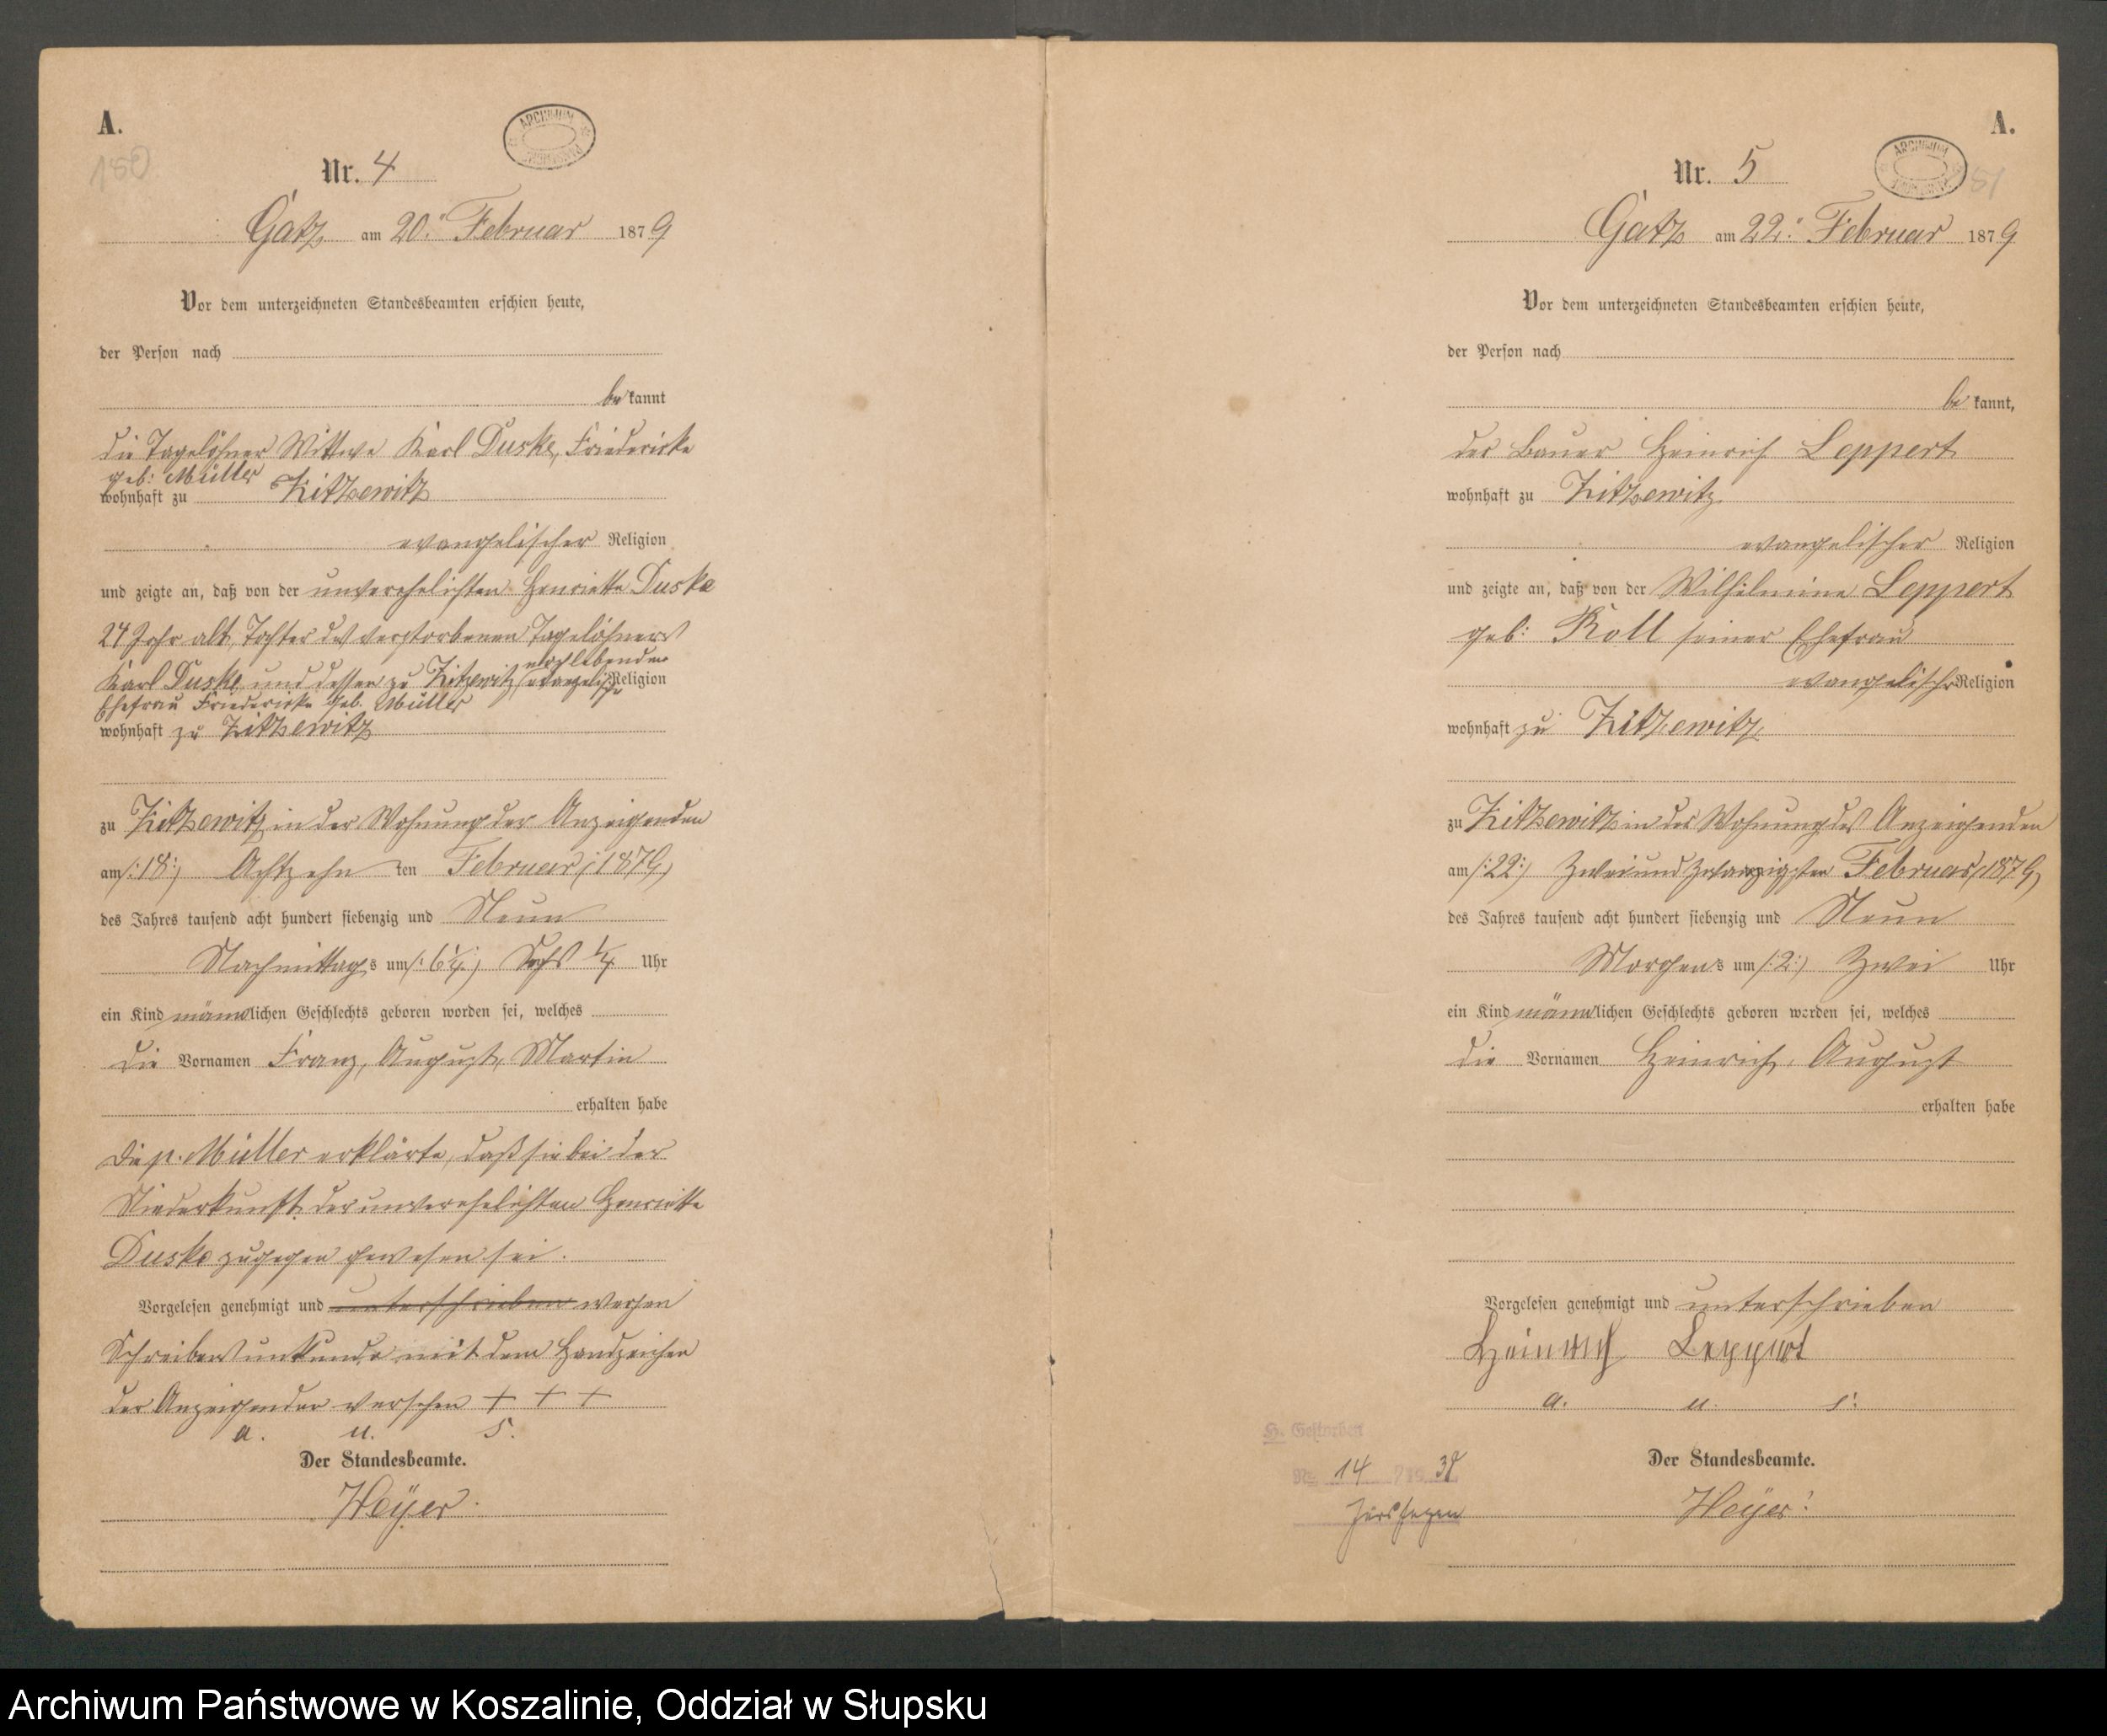 A.
180
ARCHIWUM
Nr. 4
Gatz am 20. Februar 1879
Vor dem unterzeichneten Standesbeamten erschien heute,
der Person nach
bekannt
die Tagelöhner Wittwe Karl Duske, Friedericke
geb: Müller
wohnhaft zu Zitzewitz
evangelischer Religion
und zeigte an, daß von der unverehelichten Henriette Duske
24 Jahr alt, Tochter des verstorbenen Tagelöhners
Karl Duske und dessen zu Zitzewitz nachlebenden evangelische Religion
Ehefrau Friedericke geb. Müller
wohnhaft zu Zitzewitz
zu Zitzewitz in der Wohnung der Anzeigenden
am /:18:/ Achtzehn ten Februar /:1879/
des Jahres tausend acht hundert siebenzig und Neun
Nachmittags um /: 6¼ :/ Sechs ¼ Uhr
ein Kind männlichen Geschlechts geboren worden sei, welches
die Vornamen Franz, August, Martin
erhalten habe
Die p. Müller erklärte, daß sie bei der
Niederkunft der unverehelichten Henriette
Duske zugegen gewesen sei.
Vorgelesen genehmigt und unterschrieben wegen
Schreibensunkunde mit dem Handzeichen
der Anzeigenden versehen + + +
a. u. s.
Der Standesbeamte.
Heyer.
A.
81
ARCHIWUM
Nr. 5
Gatz am 22. Februar 1879
Vor dem unterzeichneten Standesbeamten erschien heute,
der Person nach
be kannt,
der Bauer Heinrich Leppert
wohnhaft zu Zitzewitz
evangelischer Religion
und zeigte an, daß von der Wilhelmine Leppert
geb: Roll seiner Ehefrau
evangelischer Religion
wohnhaft zu Zitzewitz
zu Zitzewitz in der Wohnung des Anzeigenden
am /:22:/ Zweiundzwanzigsten Februar /1879/
des Jahres tausend acht hundert siebenzig und Neun
Morgens um /:2:/ Zwei Uhr
ein Kind männlichen Geschlechts geboren worden sei, welches
die Vornamen Heinrich, August
erhalten habe
Vorgelesen genehmigt und unterschrieben
Heinrich Leppert
a. u. s.
H. Gestorben
Nr. 14
Der Standesbeamte.
Heyer.
Archiwum Państwowe w Koszalinie, Oddział w Słupsku